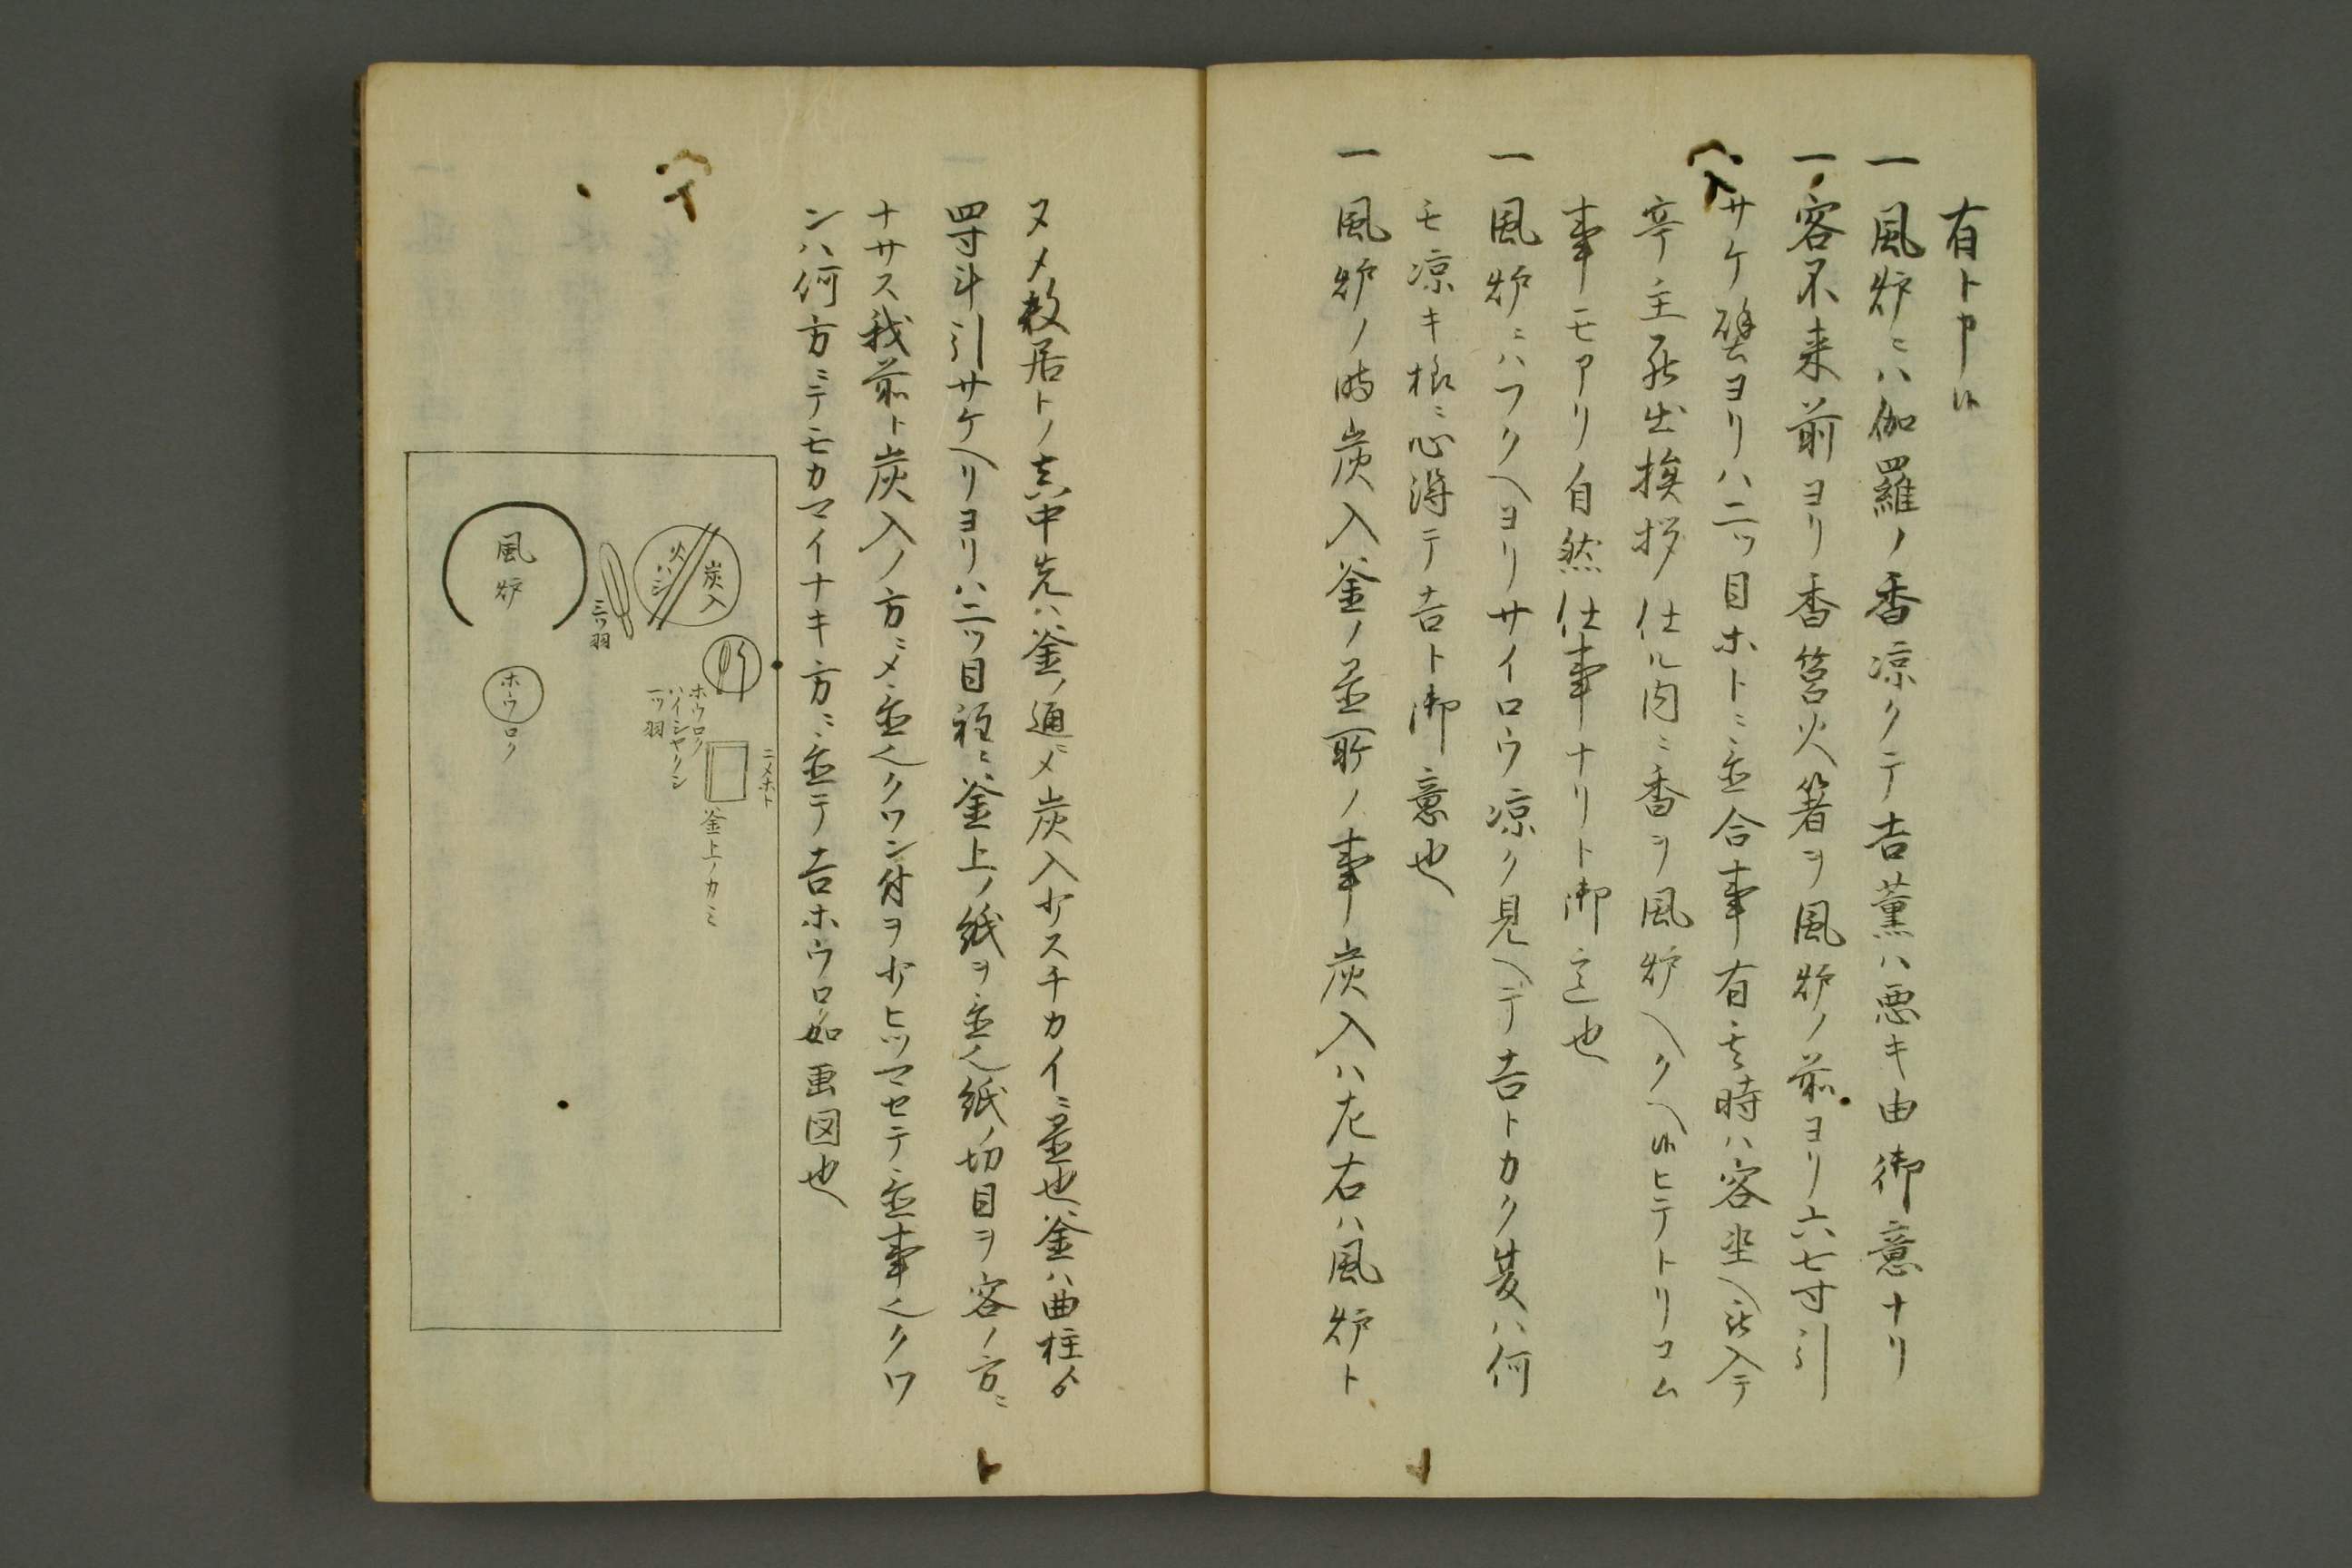 有ト申候
一風炉ニハ伽羅ノ香凉クテ吉薫ハ悪キ由御意ナリ
一客不来前ヨリ香筥火箸ヲ風炉ノ前ヨリ六七寸引
サケ壁ヨリハ二ツ目ホトニ置合事有其時ハ客坐ヘ入テ
亭主罷出挨拶仕ル内ニ香ヲ風炉ヘクヘ候ヒテトリコム
事モアリ自然仕事ナリト御意也
一風炉ニハフクヘヨリサイロウ凉ク見ヘテ吉トカク夏ハ何
モ凉キ様ニ心得テ吉ト御意也
一風炉ノ時炭入釜ノ置所ノ事炭入ハ左右ハ風炉ト
ヌメ敷居トノ真中先ハ釜ノ通ニメ炭入少スチカイニ置也釜ハ曲柱ヨ
四寸斗引サケヘリヨリハ二ツ目程ニ釜上ノ紙ヲ置ヘ紙ノ切目ヲ客ノ方ニ
ナサス我前ト炭入ノ方ニメ置ヘクワン付ヲ少ヒツマセテ置事ヘクワ
ンハ何方ニテモカマイナキ方ニ置テ吉ホウロク如画図也
炭入
火ハシ
三ツ羽
風炉
ホウロク
ハイシヤクシ
一ツ羽
二メホト
釜上ノカミ
ホウロク